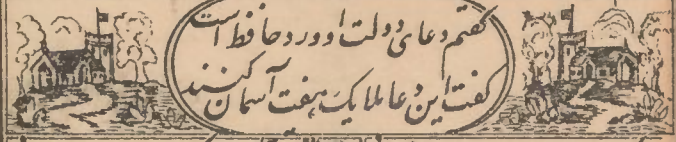 گفتم دعای دولت او ورد حافظ است
گفت این دعا ملایک هفت آسمان کنند